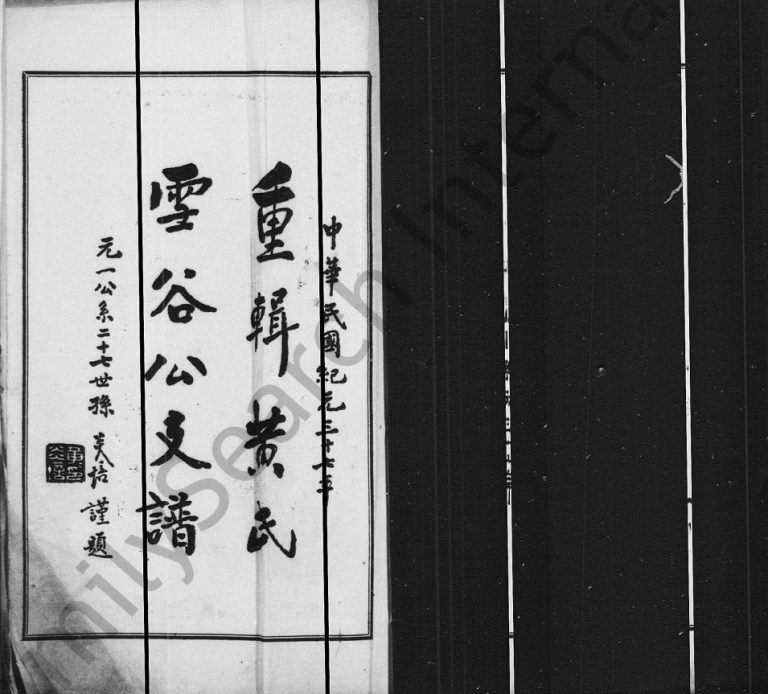 中華民國紀元三十七年
重輯黃氏
雲谷公支譜
元一公系二十七世孫 炎培 謹題
FamilySearch International